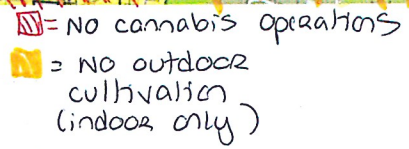 = No cannabis operations
= No outdoor
cultivation
(indoor only)